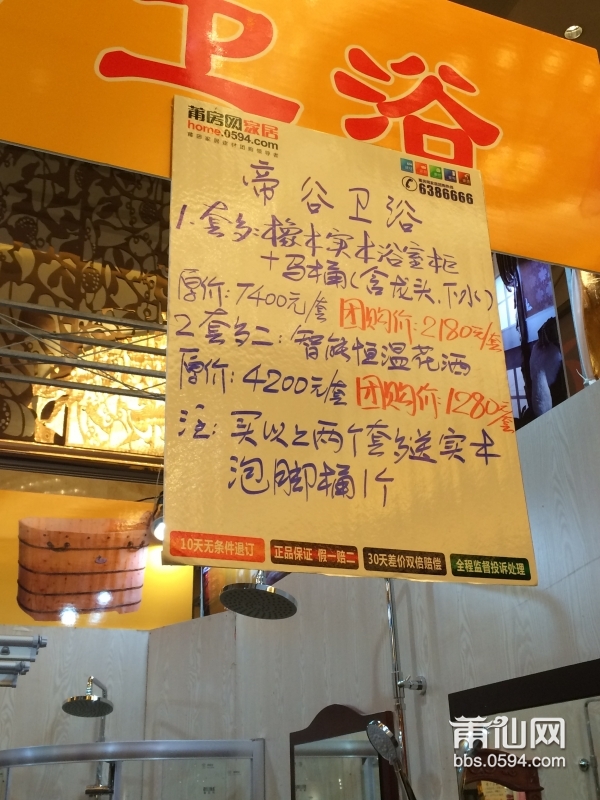 卫浴
莆房网家居
home.0594.com
6386666
帝谷卫浴
1.套多:橡木实木浴室柜
+马桶(含龙头、下水)
原价:7400元/套 团购价:2180元/套
2.套多二:智能恒温花洒
原价:4200元/套 团购价:1280元/套
注:买以上两个套多送实木
泡脚桶1个
10天无条件退订 正品保证 假一赔二 30天差价双倍赔偿 全程监督投诉处理
莆仙网
bbs.0594.com